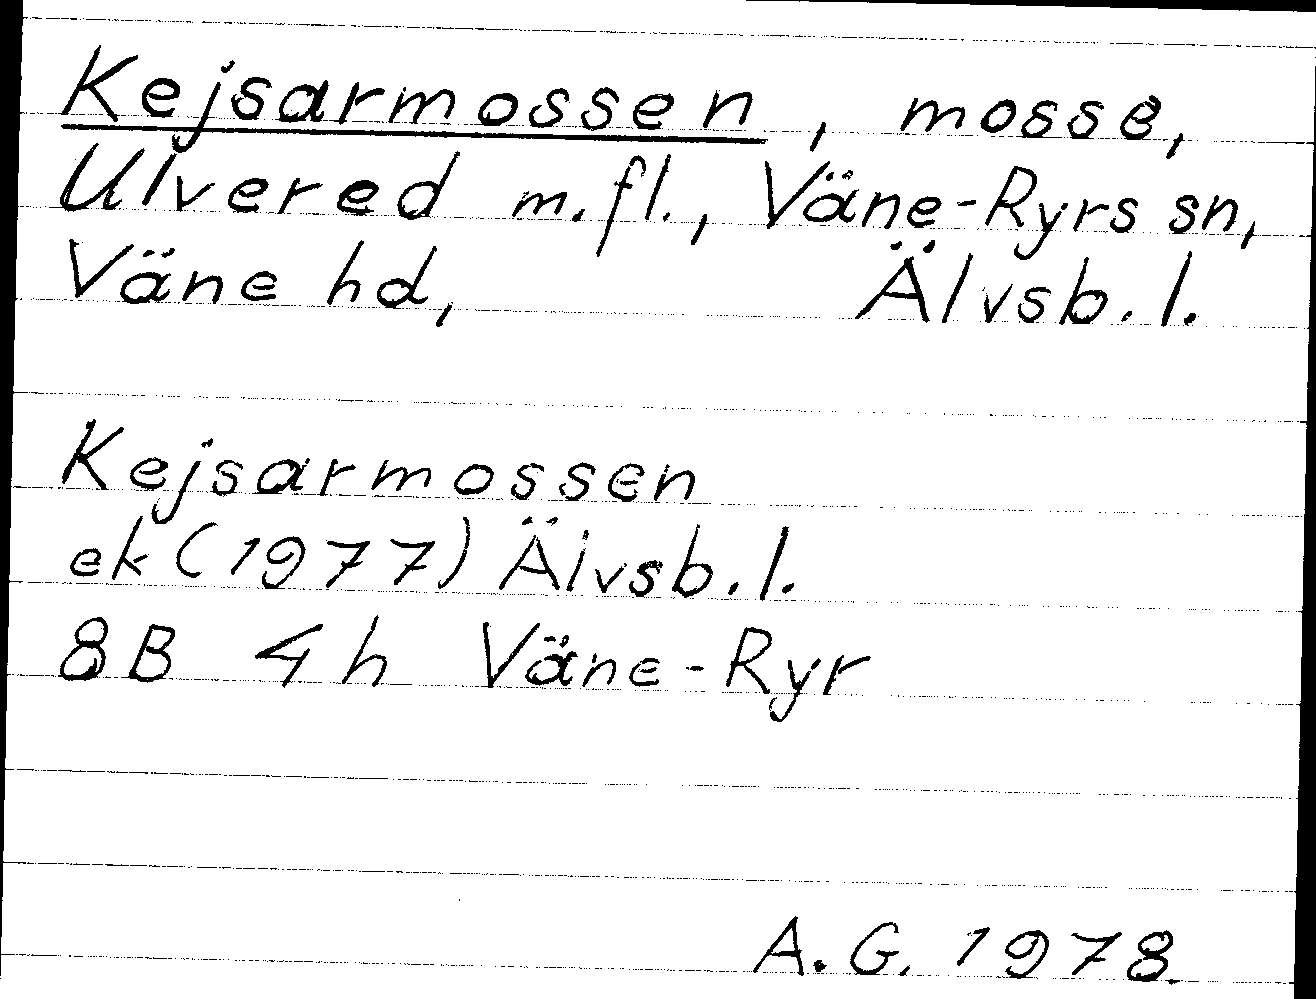 Kejsarmossen, mosse,
Ulvered m.fl., Väne-Ryrs sn,
Väne hd, Älvsb.l.
Kejsarmossen
ek (1977) Älvsb.l.
8B 4h Väne-Ryr
A.G. 1978.